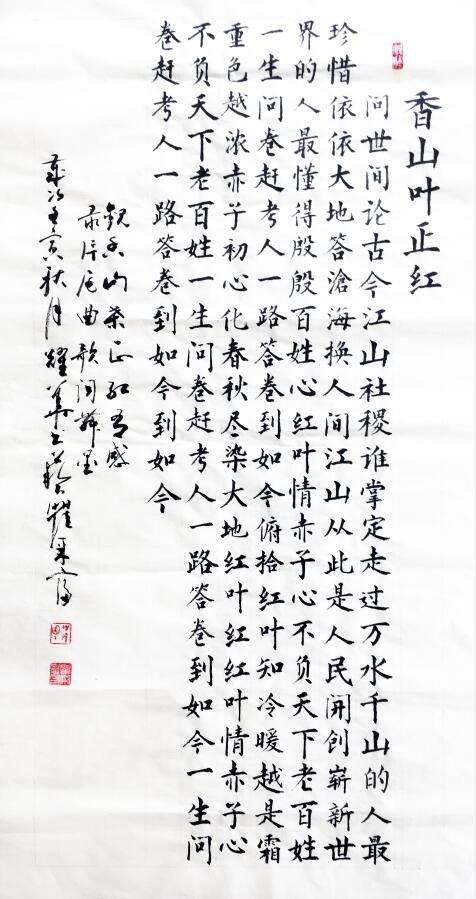 香山叶正红
问世间论古今江山社稷谁掌定走过万水千山的人最
珍惜依依大地答滄海换人间江山从此是人民開創崭新世
界的人最懂得殷殷百姓心红叶情赤子心不负天下老百姓
一生问卷赶考人一路答卷到如今俯拾红叶知冷暖越是霜
重色越浓赤子初心化春秋尽染大地红叶红红叶情赤子心
不负天下老百姓一生问卷赶考人一路答卷到如今一生问
卷赶考人一路答卷到如今到如今
观香山叶正红有感
录片尾曲歌词舞墨
岁次壬寅秋月耀华书於